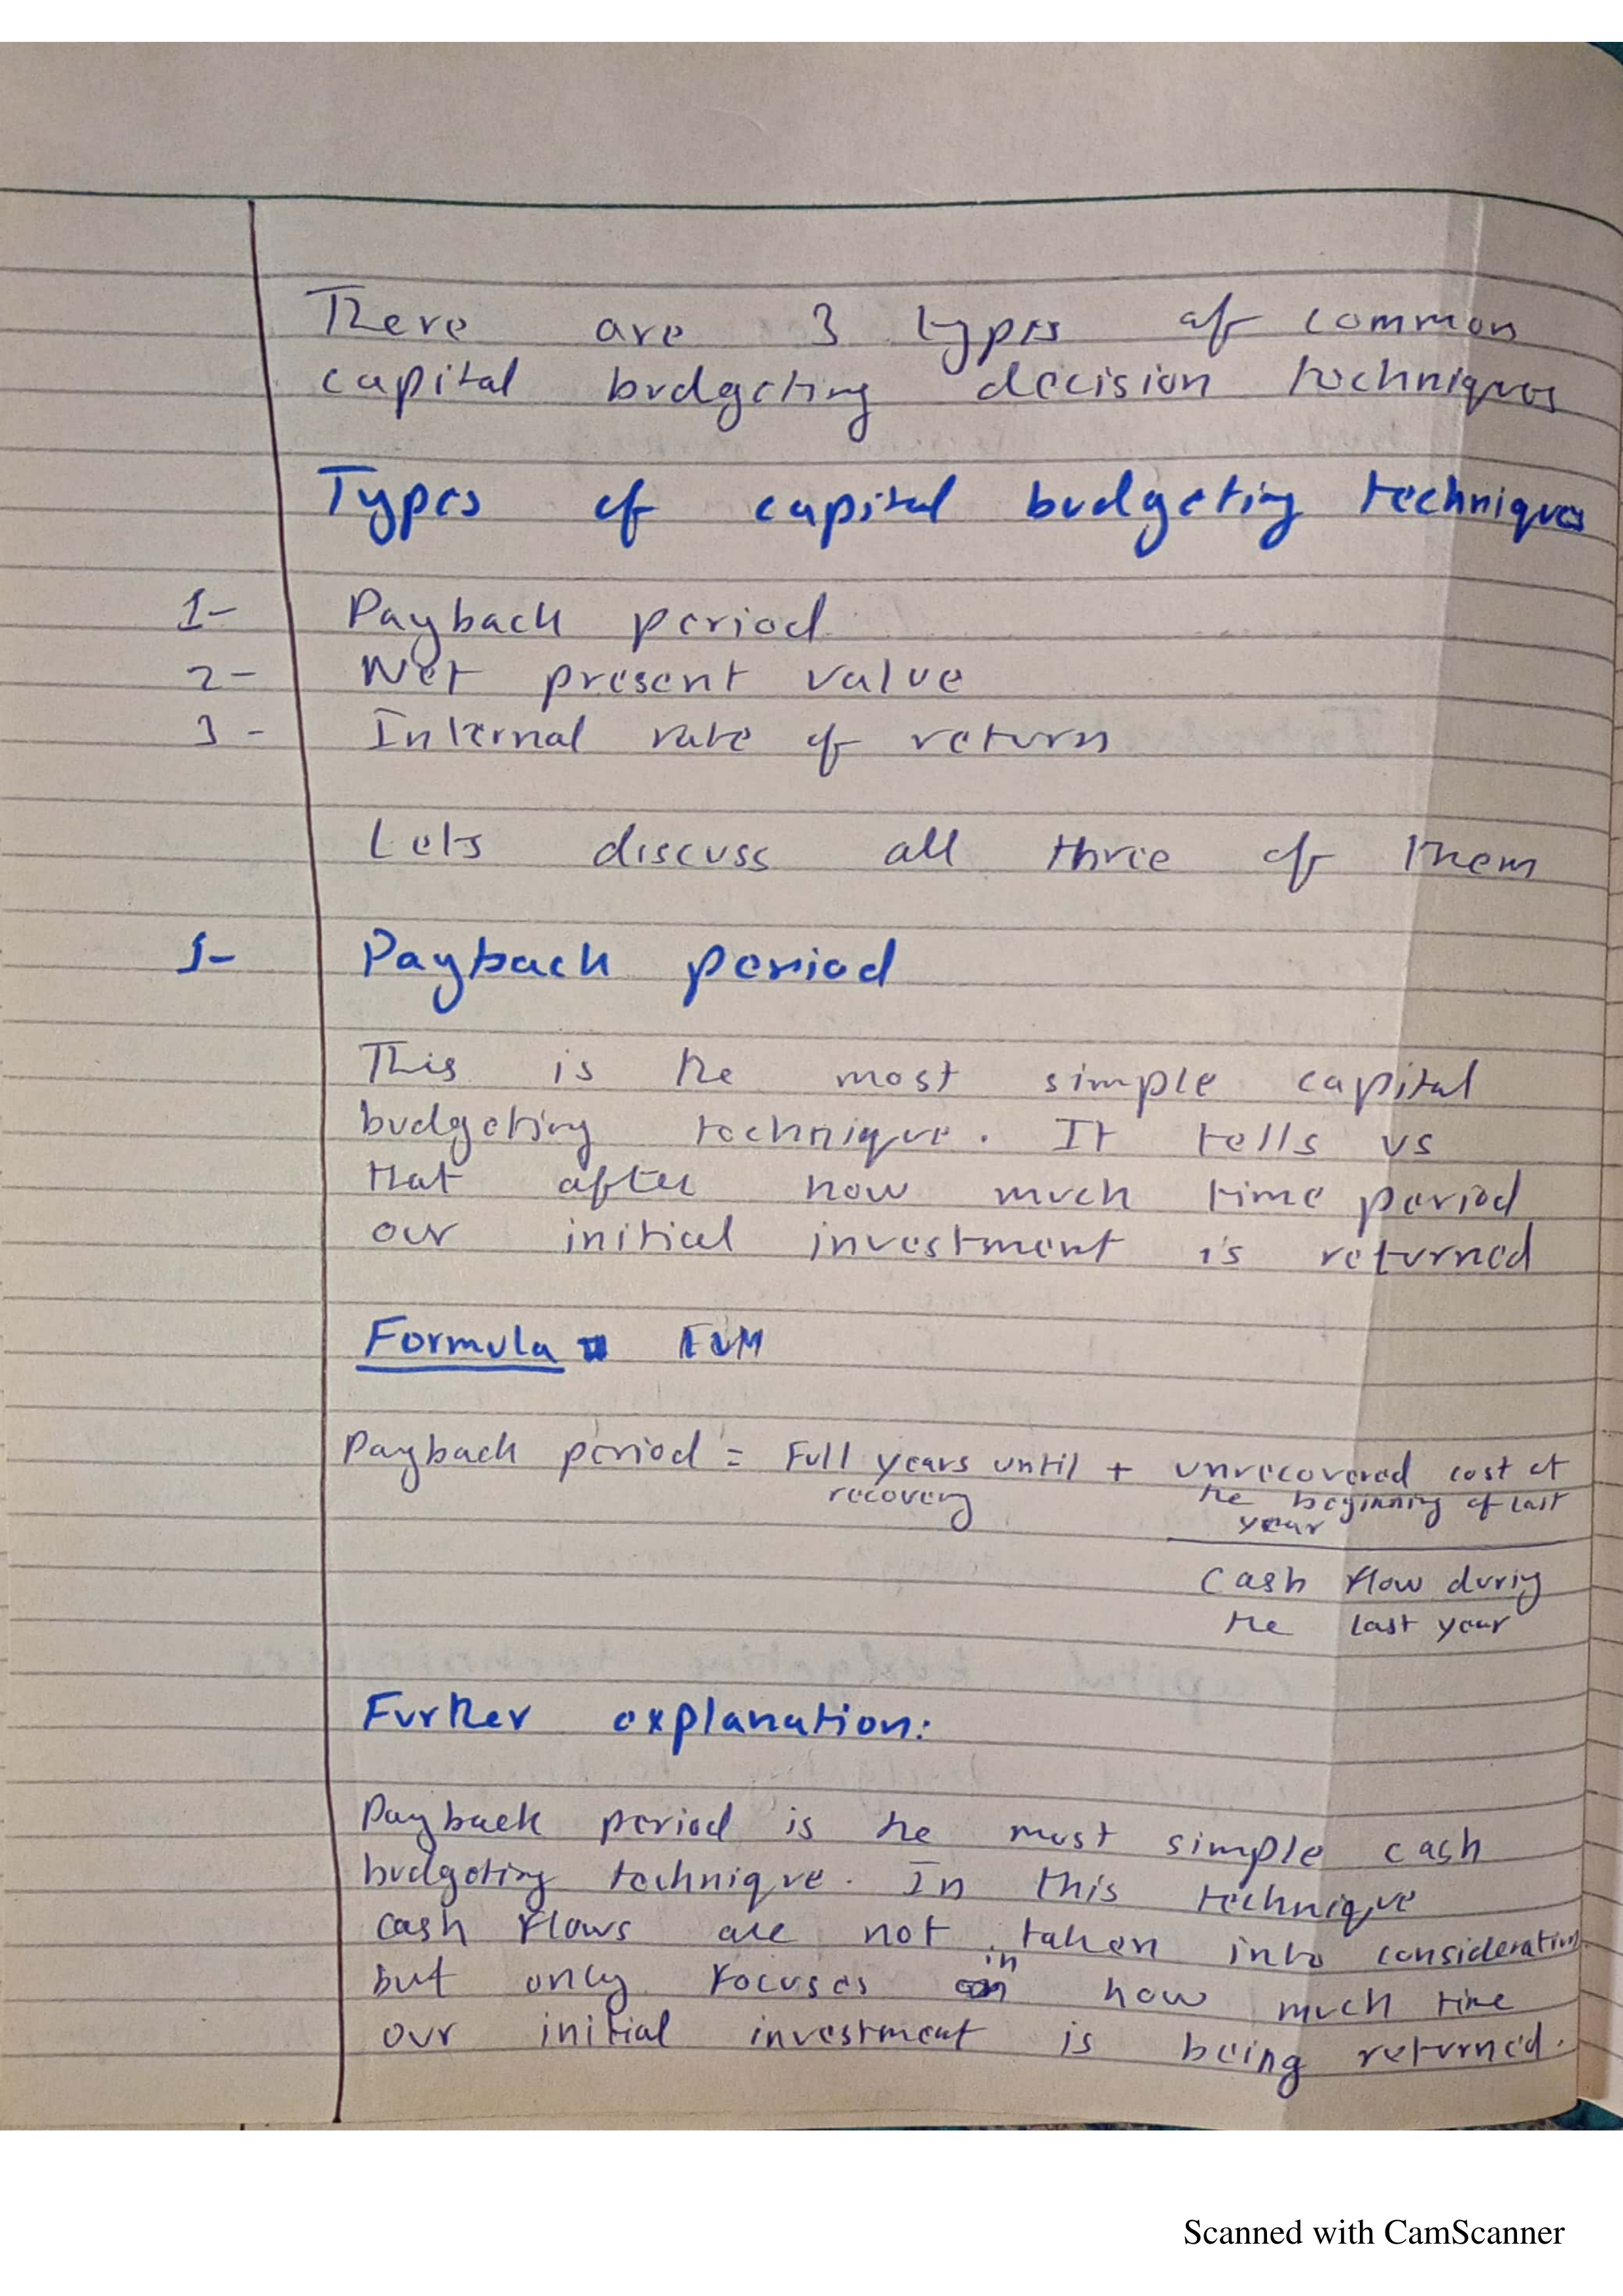 There are 3 types of common
capital budgeting decision techniques
Types of capital budgeting techniques
1- Payback period
2- Net present value
3- Internal rate of return
Lets discuss all three of them
1- Payback period
This is the most simple capital
budgeting technique. It tells us
that after how much time period
our initial investment is returned
Formula
Payback period = Full years until + unrecovered cost at
recovery the beginning of last
year
Cash flow during
the last year
Further explanation:
Payback period is the most simple cash
budgeting technique. In this technique
cash flows are not taken into consideration
but only focuses in how much time
our initial investment is being returned.
Scanned with CamScanner